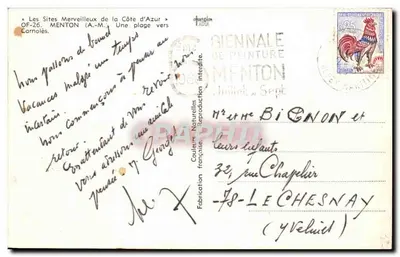 « Les Sites Merveilleux de la Côte d'Azur »
OF-26. MENTON (A.-M.) Une plage vers
Carnolès.
Nous passons de bonnes
vacances malgré un temps
incertain
nous commençons à penser au
retour.
En attendant de vous revoir nous
vous adressons une amicale
pensée
Couleurs Naturelles
Fabrication française - Reproduction interdite
BIENNALE
DE PEINTURE
MENTON
Sept
Mr et Mme BIGNON et
leurs enfants
32, rue Chapelier
-78- LE CHESNAY
(Yvelines)